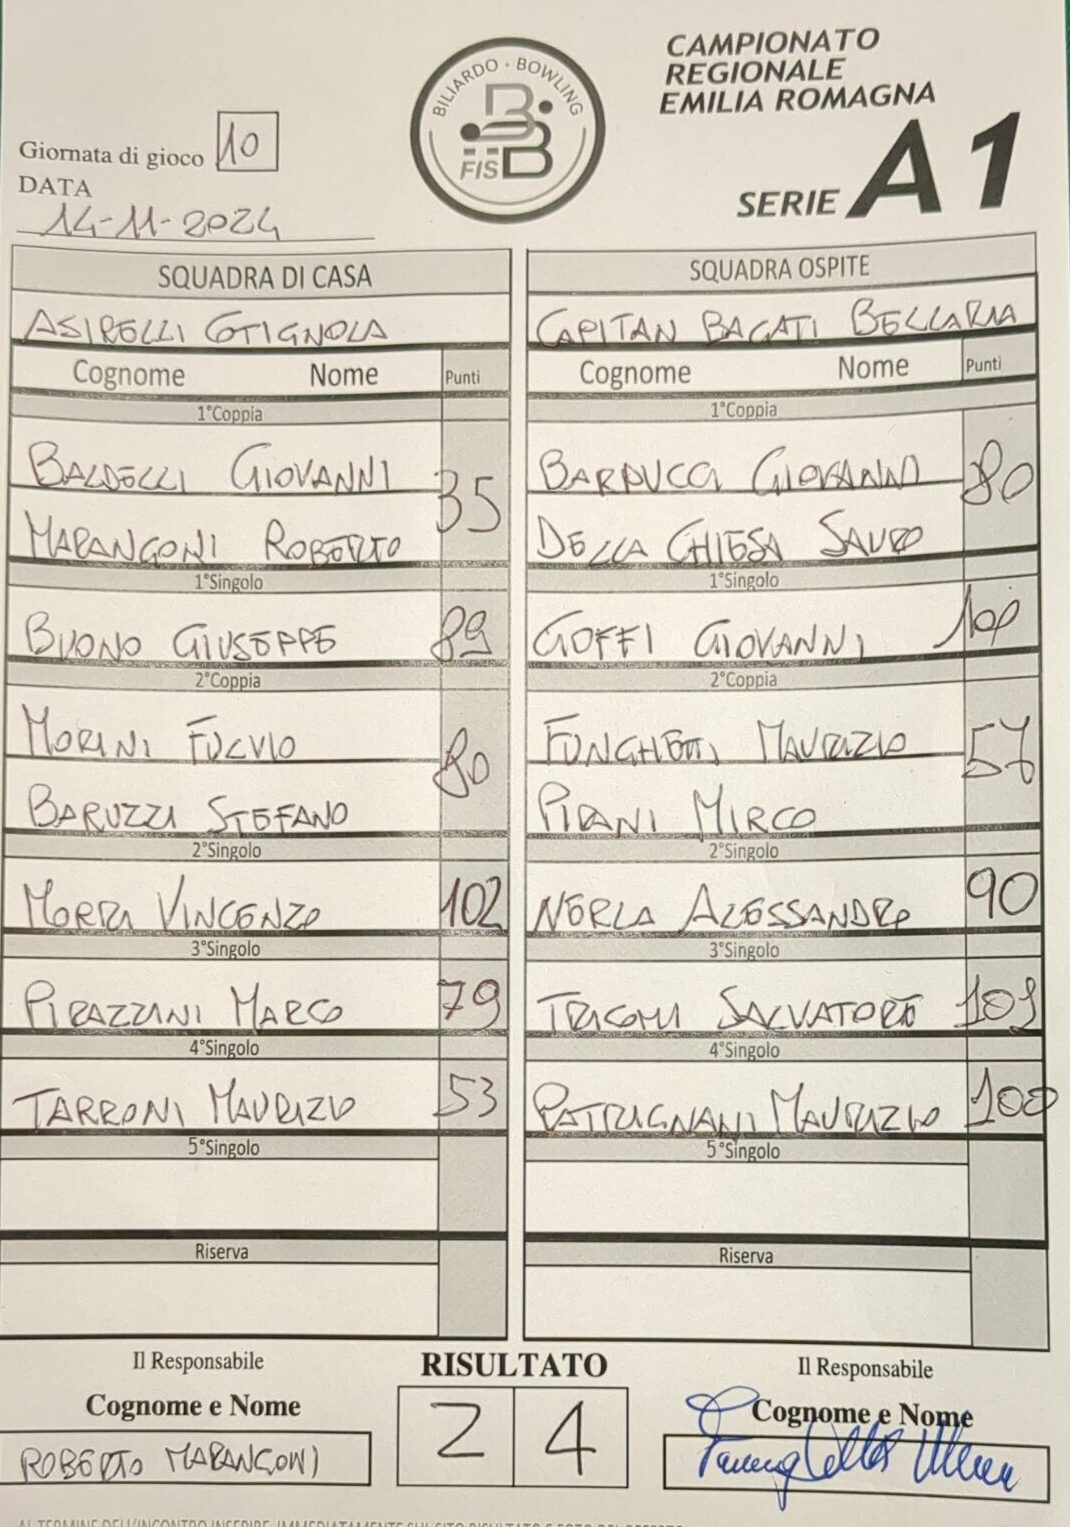 CAMPIONATO
REGIONALE
EMILIA ROMAGNA
SERIE A1
BILIARDO · BOWLING
FISBB
Giornata di gioco 10
DATA
14-11-2024
SQUADRA DI CASA
SQUADRA OSPITE
ASIRELLI COTIGNOLA
CAPITAN BAGATI BELLARIA
Cognome Nome Punti
Cognome Nome Punti
1°Coppia
1°Coppia
BALDELLI GIOVANNI
35
MARANGONI ROBERTO
BARDUCCI GIOVANNI
80
DELLA CHIESA SAURO
1°Singolo
1°Singolo
BUONO GIUSEPPE 89
GOFFI GIOVANNI 100
2°Coppia
2°Coppia
MORINI FULVIO
80
BARUZZI STEFANO
FUNGHETTI MAURIZIO
57
PIRANI MIRCO
2°Singolo
2°Singolo
MORRA VINCENZO 102
NERLA ALESSANDRO 90
3°Singolo
3°Singolo
PIRAZZINI MARCO 79
TRICOMI SALVATORE 101
4°Singolo
4°Singolo
TARRONI MAURIZIO 53
PATRIGNANI MAURIZIO 100
5°Singolo
5°Singolo
Riserva
Riserva
Il Responsabile
RISULTATO
Il Responsabile
Cognome e Nome
2 4
Cognome e Nome
ROBERTO MARANGONI